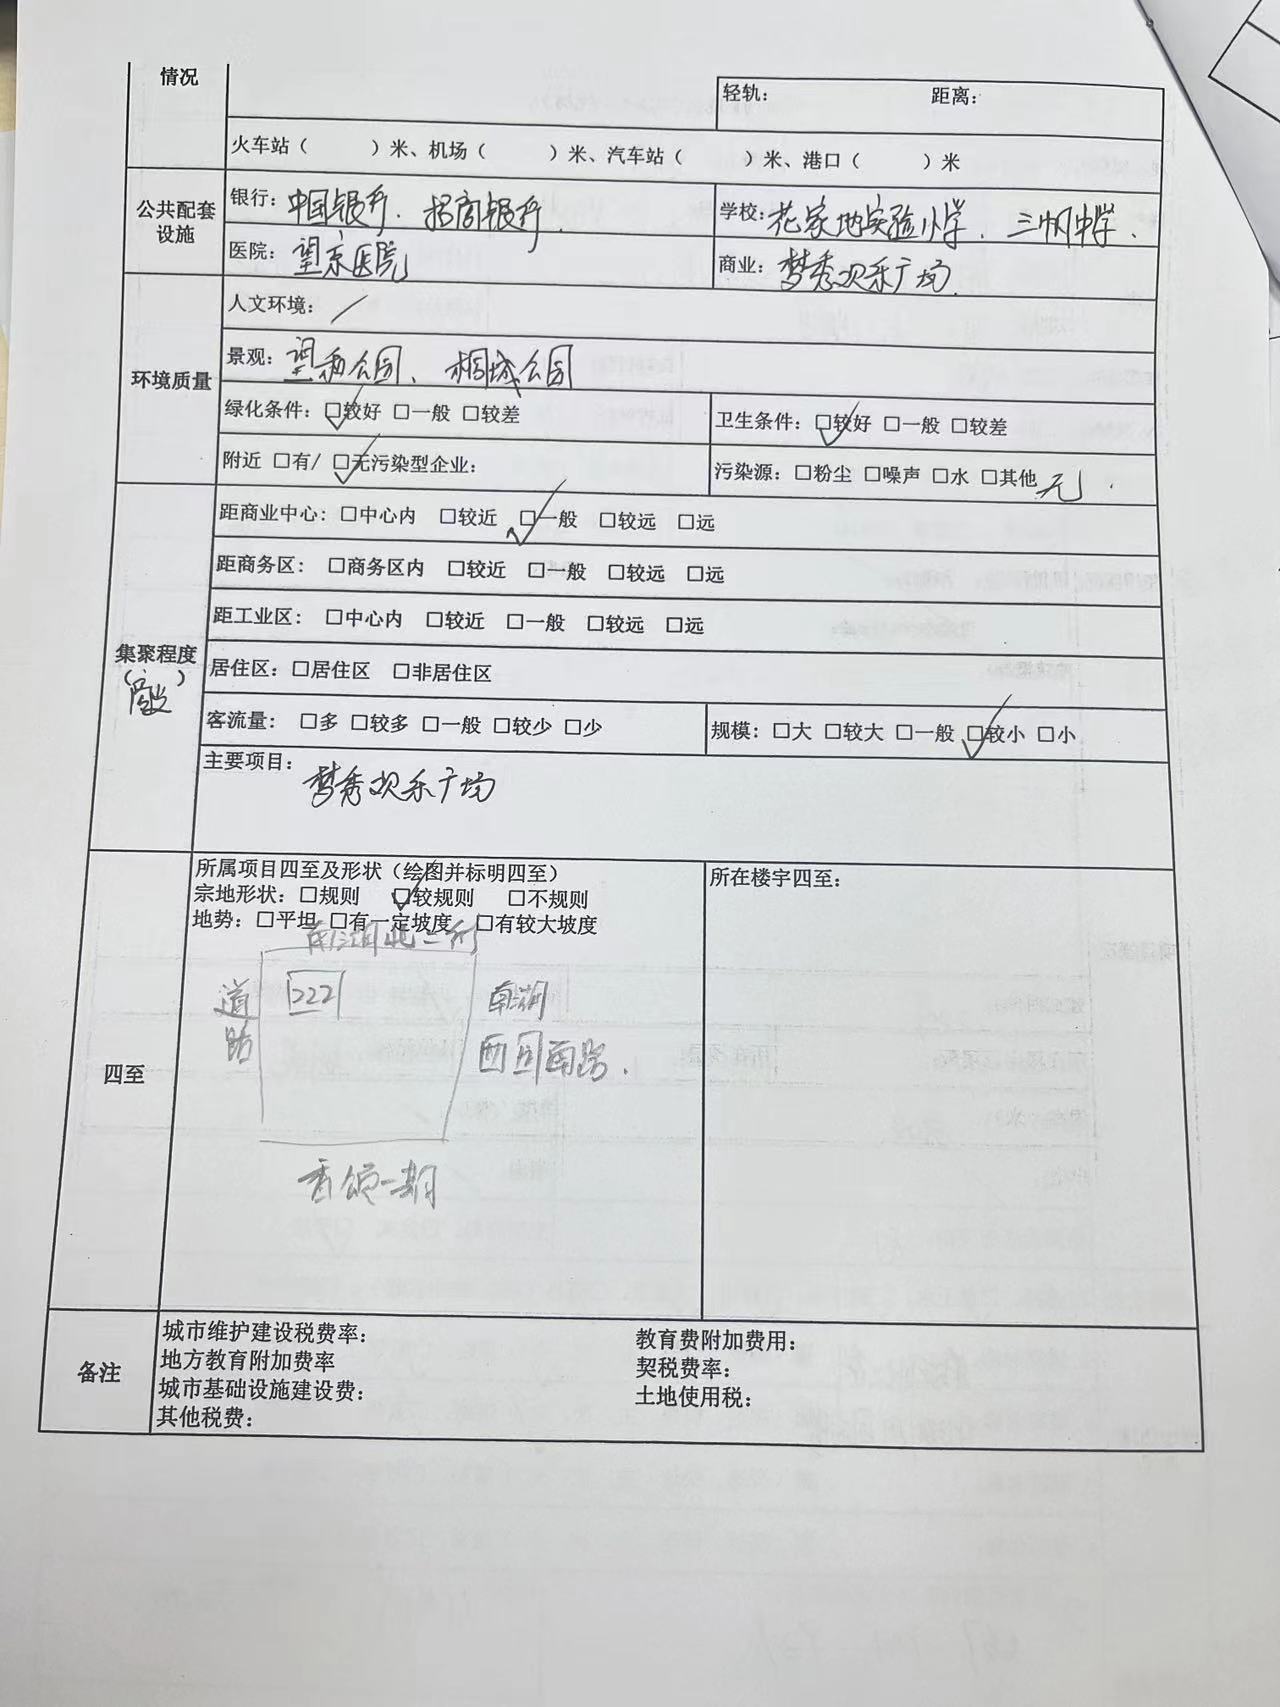 情况
轻轨： 距离：
火车站（ ）米、机场（ ）米、汽车站（ ）米、港口（ ）米
公共配套设施
银行：中国银行、招商银行.
学校：花家地实验小学 三帆中学.
医院：望京医院
商业：梦秀欢乐广场.
环境质量
人文环境：/
景观：望和公园、桐城公园
绿化条件：☑较好 □一般 □较差
卫生条件：☑较好 □一般 □较差
附近 □有/ ☑无污染型企业：
污染源：□粉尘 □噪声 □水 □其他 无.
集聚程度
（商业）
距商业中心：□中心内 □较近 ☑一般 □较远 □远
距商务区：□商务区内 □较近 □一般 □较远 □远
距工业区：□中心内 □较近 □一般 □较远 □远
居住区：□居住区 □非居住区
客流量：□多 □较多 □一般 □较少 □少
规模：□大 □较大 □一般 ☑较小 □小
主要项目：梦秀欢乐广场
四至
所属项目四至及形状（绘图并标明四至）
宗地形状：□规则 ☑较规则 □不规则
地势：□平坦 □有一定坡度 □有较大坡度
所在楼宇四至：
南湖北二街
道路
222
南湖
西园南路.
香颂一期
备注
城市维护建设税费率： 教育费附加费用：
地方教育附加费率 契税费率：
城市基础设施建设费： 土地使用税：
其他税费：